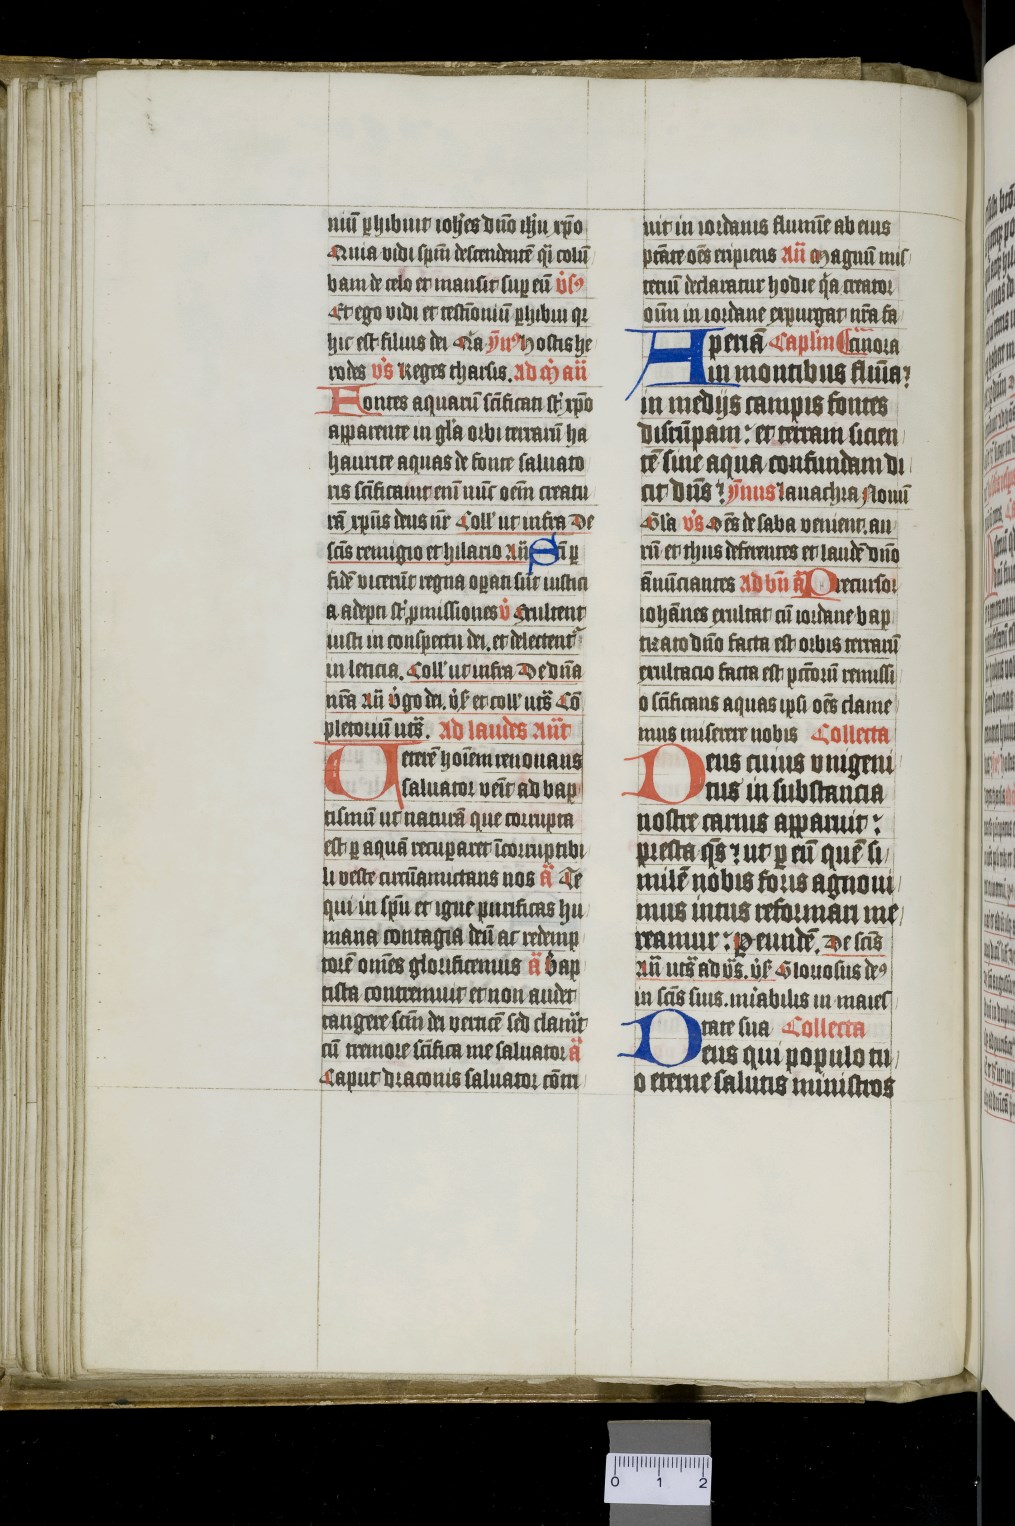 niū ꝑhibuit ioh̄es dn̄o ih̄u xp̄o
Quia vidi sp̄m descendentē q̄i colū
bam de celo et mansit suꝑ eū v̓sꝰ
Et ego vidi et testīoniū ꝑhibui qꝛ
hic est filius dei Gl̄a ym̄ꝰ Hostis he
rodes v̓s Reges tharsis. Ad m̄ añ
Fontes aquarū sc̄ificati sū xp̄o
apparente in gl̄a orbi terrarū ha
haurite aquas de fonte saluato
ris sc̄ificauit enī nūc oēm creatu
rā xp̄us deus nr̄ Coll̄ ut infra De
sc̄is remigio et hilario Añ Sc̄i ꝑ
fidē vicerūt regna oꝑati sūt iustici
a adepti sūt ꝓmissiones v̓ Exultent
iusti in conspectu dei. et delectent̄
in leticia. Coll̄ ut infra De dn̄a
nr̄a Añ v̓go dei. v̓s̄ et coll̄ uts̄ Cō
pletoriū uts̄. Ad laudes Añt
Ueterē hoīem renouans
saluator venit ad bap
tismū ut naturā que corrupta
est ꝑ aquā recuꝑaret īcorruptibi
li veste circūamictans nos ā Te
qui in sp̄u et igne purificas hu
mana contagia deū ac redemp
torē om̄es glorificemus ā Bap
tista contremuit et non audet
tangere sc̄m dei verticē sed clamat
cū tremore sc̄ifica me saluator ā
Caput draconis saluator cōtri
uit in iordanis flumīe ab eius
ptāte oēs eripiens Añ Magnum mis
teriū declaratur hodie qa creator
oīm in iordane expurgat nr̄a fa
cinora Capl̄m
Aperiā
in montibus flumīa ꝛ
in medijs campis fontes
disrūpam : et terram sicien
tē sine aqua confundam di
cit dn̄s ꝛ ym̄us Iam xp̄a Nouū
Gl̄a v̓s Oēs de saba venient. au
rū et thus deferentes et laudē dn̄o
ānūciantes Ad bn̄ ā Precursor
iohānes exultat cū iordane bap
tizato dn̄o facta est orbis terrarū
exultacio facta est pc̄torū remissi
o sc̄ificans aquas ipsi oēs clame
mus miserere nobis Collecta
Deus cuius vnigeni
tus in substancia
nostre carnis apparuit :
presta q̄s ꝛ ut ꝑ eū quē si
milē nobis foris agnoui
mus intus reformari me
reamur : P eundē. De sc̄is
Añ uts̄ ad vs̄. v̓s̄ Gloriosus deꝰ
in sc̄is suis. mirabilis in maies
tate sua Collecta
Deus qui populo tu
o eterne salutis ministros